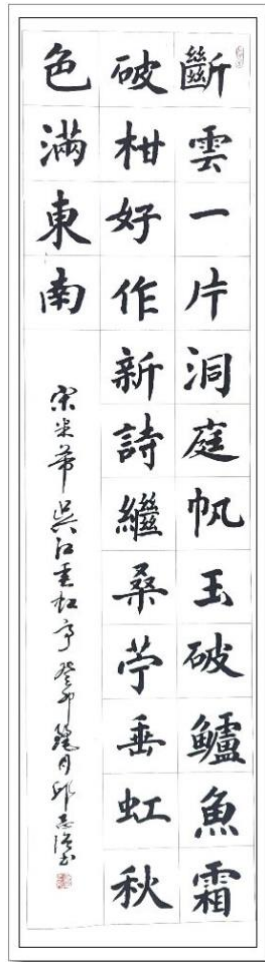 斷雲一片洞庭帆玉破鱸魚霜
破柑好作新詩繼桑苧垂虹秋
色滿東南
宋米芾吳江垂虹亭 癸卯 月邱